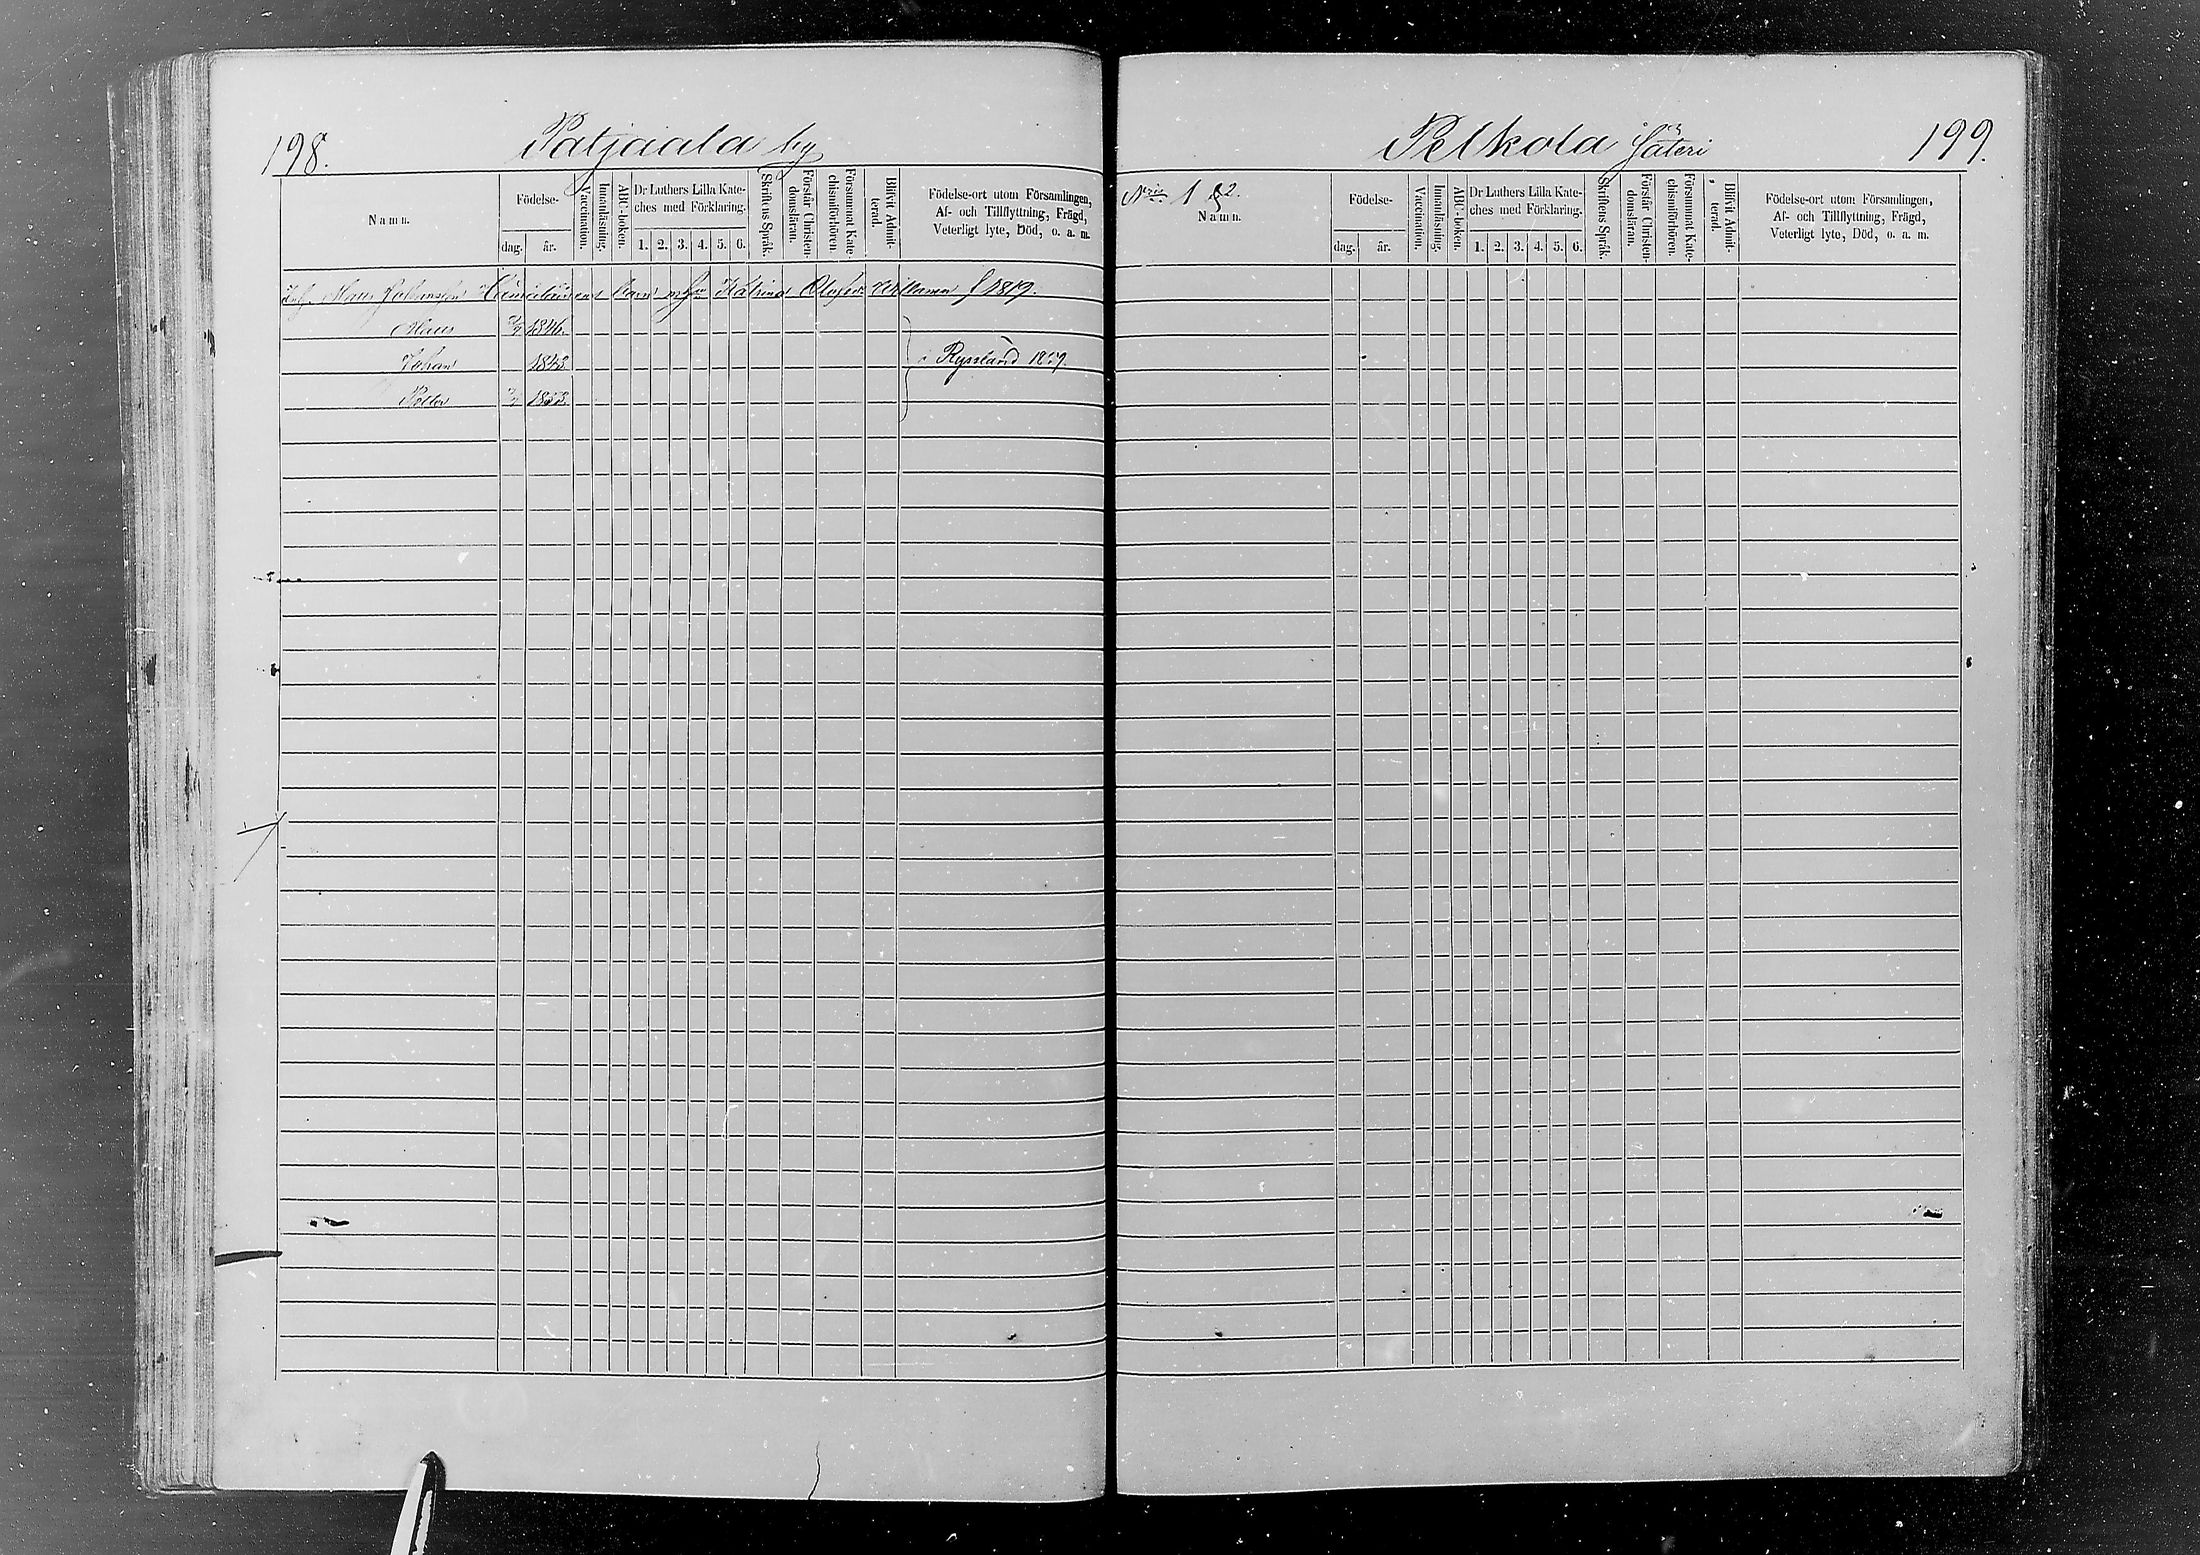 198.
Patjaala by
Namn.
Födelse-
dag.
år.
Vaccination.
Innanläsning.
ABC-boken.
Dr Luthers Lilla Kate-
ches med Förklaring.
1. 2. 3. 4. 5. 6.
Skriftens Språk.
Förstår Christen-
domsläran.
Försummat Kate-
chismiförhören.
Blifvit Admit-
terad.
Födelse-ort utom Församlingen,
Af- och Tillflyttning, Frägd,
Veterligt lyte, Död, o. a. m.
Johansson barn m Katrina f 1819.
1846.
Johan 1843
1853.
i Ryssland
Pelkola Säteri
199.
N:ris 1 & 2.
Namn.
Födelse-
dag.
år.
Vaccination.
Innanläsning.
ABC-boken.
Dr Luthers Lilla Kate-
ches med Förklaring.
1. 2. 3. 4. 5. 6.
Skriftens Språk.
Förstår Christen-
domsläran.
Försummat Kate-
chismiförhören.
Blifvit Admit-
terad.
Födelse-ort utom Församlingen,
Af- och Tillflyttning, Frägd,
Veterligt lyte, Död, o. a. m.